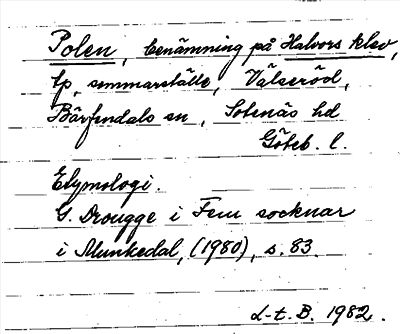 Polen, benämning på Halvors klev,
tp, sommarställe, Välseröd,
Bärfendals sn, Sotenäs hd
Göteb. l.
Etymologi.
G. Drougge i Fem socknar
i Munkedal, (1980), s. 83.
L-t. B. 1982.